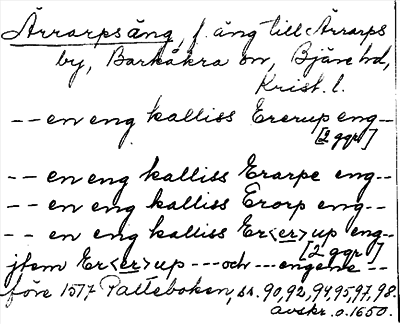 Ärrarpsäng, f. äng till Ärrarps
by, Barkåkra sn, Bjäre hd,
Krist. l.
-- en eng kalliss Ererup eng--
[2 ggr]
-- en eng kalliss Erarpe eng--
-- en eng kalliss Erorp eng--
-- en eng kalliss Er<er>up eng--
[2 ggr]
jtem Er<er>up --- och --- engene --
före 1577 Palteboken, ss. 90, 92, 94, 95, 97, 98.
avskr. o. 1650.